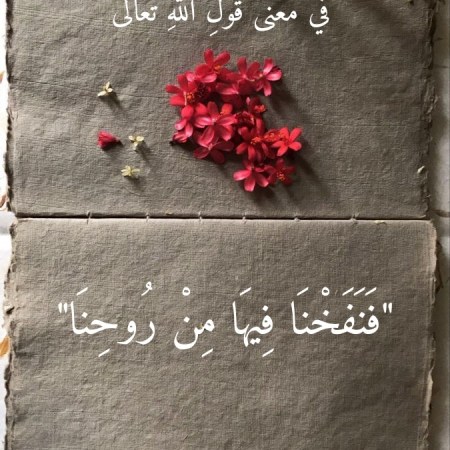 في معنى قولِ اللهِ تعالى
"فَنَفَخْنَا فِيهَا مِنْ رُوحِنَا"